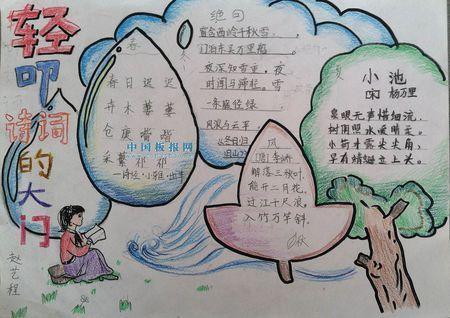 轻叩
诗词
的大门
春
春日迟迟
卉木萋萋
仓庚喈喈
采蘩祁祁
中国板报网
冬
绝句
窗含西岭千秋雪
门泊东吴万里船
夜深知雪重，夜
夏
小池
宋 杨万里
泉眼无声惜细流，
树阴照水爱晴柔。
小荷才露尖尖角，
早有蜻蜓立上头。
风
(唐) 李峤
解落三秋叶，
能开二月花，
过江千尺浪，
入竹万竿斜。
秋
赵艺程